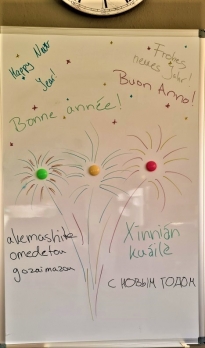 Happy New
Year!
Frohes
neues Jahr!
Buon Anno!
Bonne année!
akemashite
omedetou
gozaimazou
Xīnnián
kuàilè
С НОВЫМ ГОДОМ